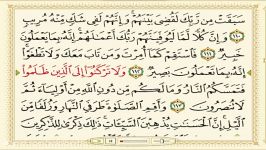 سَبَقَتْ مِن رَّبِّكَ لَقُضِىَ بَيْنَهُمْ وَإِنَّهُمْ لَفِى شَكٍّ مِّنْهُ مُرِيبٍ
﴿١١٠﴾ وَإِنَّ كُلًّا لَّمَّا لَيُوَفِّيَنَّهُمْ رَبُّكَ أَعْمَٰلَهُمْ إِنَّهُۥ بِمَا يَعْمَلُونَ
خَبِيرٌ ﴿١١١﴾ فَٱسْتَقِمْ كَمَآ أُمِرْتَ وَمَن تَابَ مَعَكَ وَلَا تَطْغَوْا۟
إِنَّهُۥ بِمَا تَعْمَلُونَ بَصِيرٌ ﴿١١٢﴾ وَلَا تَرْكَنُوٓا۟ إِلَى ٱلَّذِينَ ظَلَمُوا۟
فَتَمَسَّكُمُ ٱلنَّارُ وَمَا لَكُم مِّن دُونِ ٱللَّهِ مِنْ أَوْلِيَآءَ ثُمَّ
لَا تُنصَرُونَ ﴿١١٣﴾ وَأَقِمِ ٱلصَّلَوٰةَ طَرَفَىِ ٱلنَّهَارِ وَزُلَفًا مِّنَ
ٱلَّيْلِ إِنَّ ٱلْحَسَنَٰتِ يُذْهِبْنَ ٱلسَّيِّـَٔاتِ ذَٰلِكَ ذِكْرَىٰ لِلذَّٰكِرِينَ